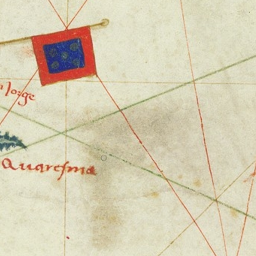 Jorge
quaresma